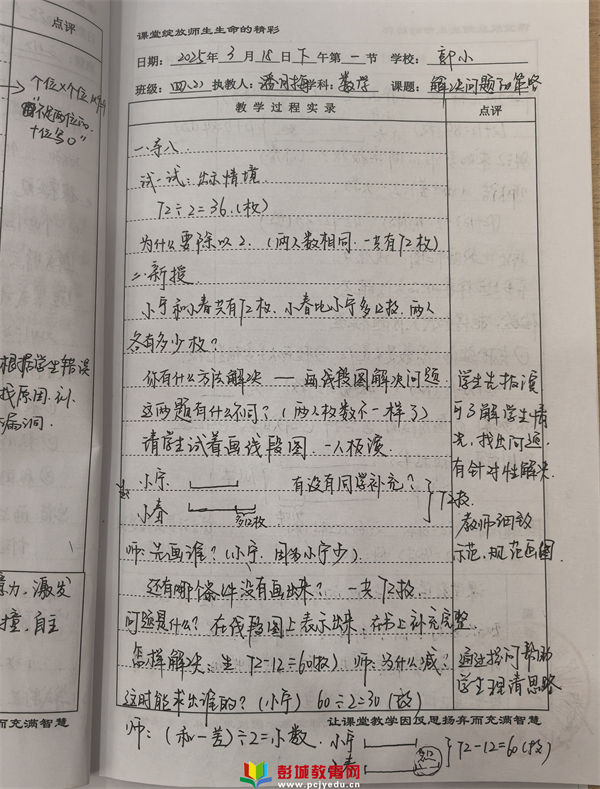 点评
个位×个位
不是两位的
十位写0"
根据学生错误
找原因.补
漏洞.
力,激发
撞,自主
而充满智慧
课堂绽放师生生命的精彩
日期: 2025年 3月 18日 下午第一节 学校:
班级: 四(2) 执教人: 学科: 数学 课题: 解决问题的策略
教学过程实录 点评
一.导入
试一试:出示情境
72÷2=36.(枚)
为什么要除以2.(两人数相同.一共有72枚)
二.新授.
小宁和小春共有72枚.小春比小宁多12枚.两人
各有多少枚?
你有什么方法解决——画线段图解决问题
这两题有什么不同?(两人枚数不一样了)
请学生试着画线段图.一人板演
小宁 有没有同学补充? 72枚
小春 多12枚
师:先画谁?(小宁.因为小宁少)
还有哪个条件没有画出来? 一共72枚
问题是什么?在线段图上表示出来.在书上补充完整.
怎样解决:生72-12=60(枚) 师:为什么减?
这时能求出谁的?(小宁) 60÷2=30(枚)
师:(和-差)÷2=小数. 小宁 小春 72-12=60(枚)
学生先板演
可了解学生情
况,找出问题
有针对性解决.
教师细致
示范.规范画图
通过提问帮助
学生理清思路
让课堂教学因反思扬弃而充满智慧
彭城教育网
www.pcjyedu.cn